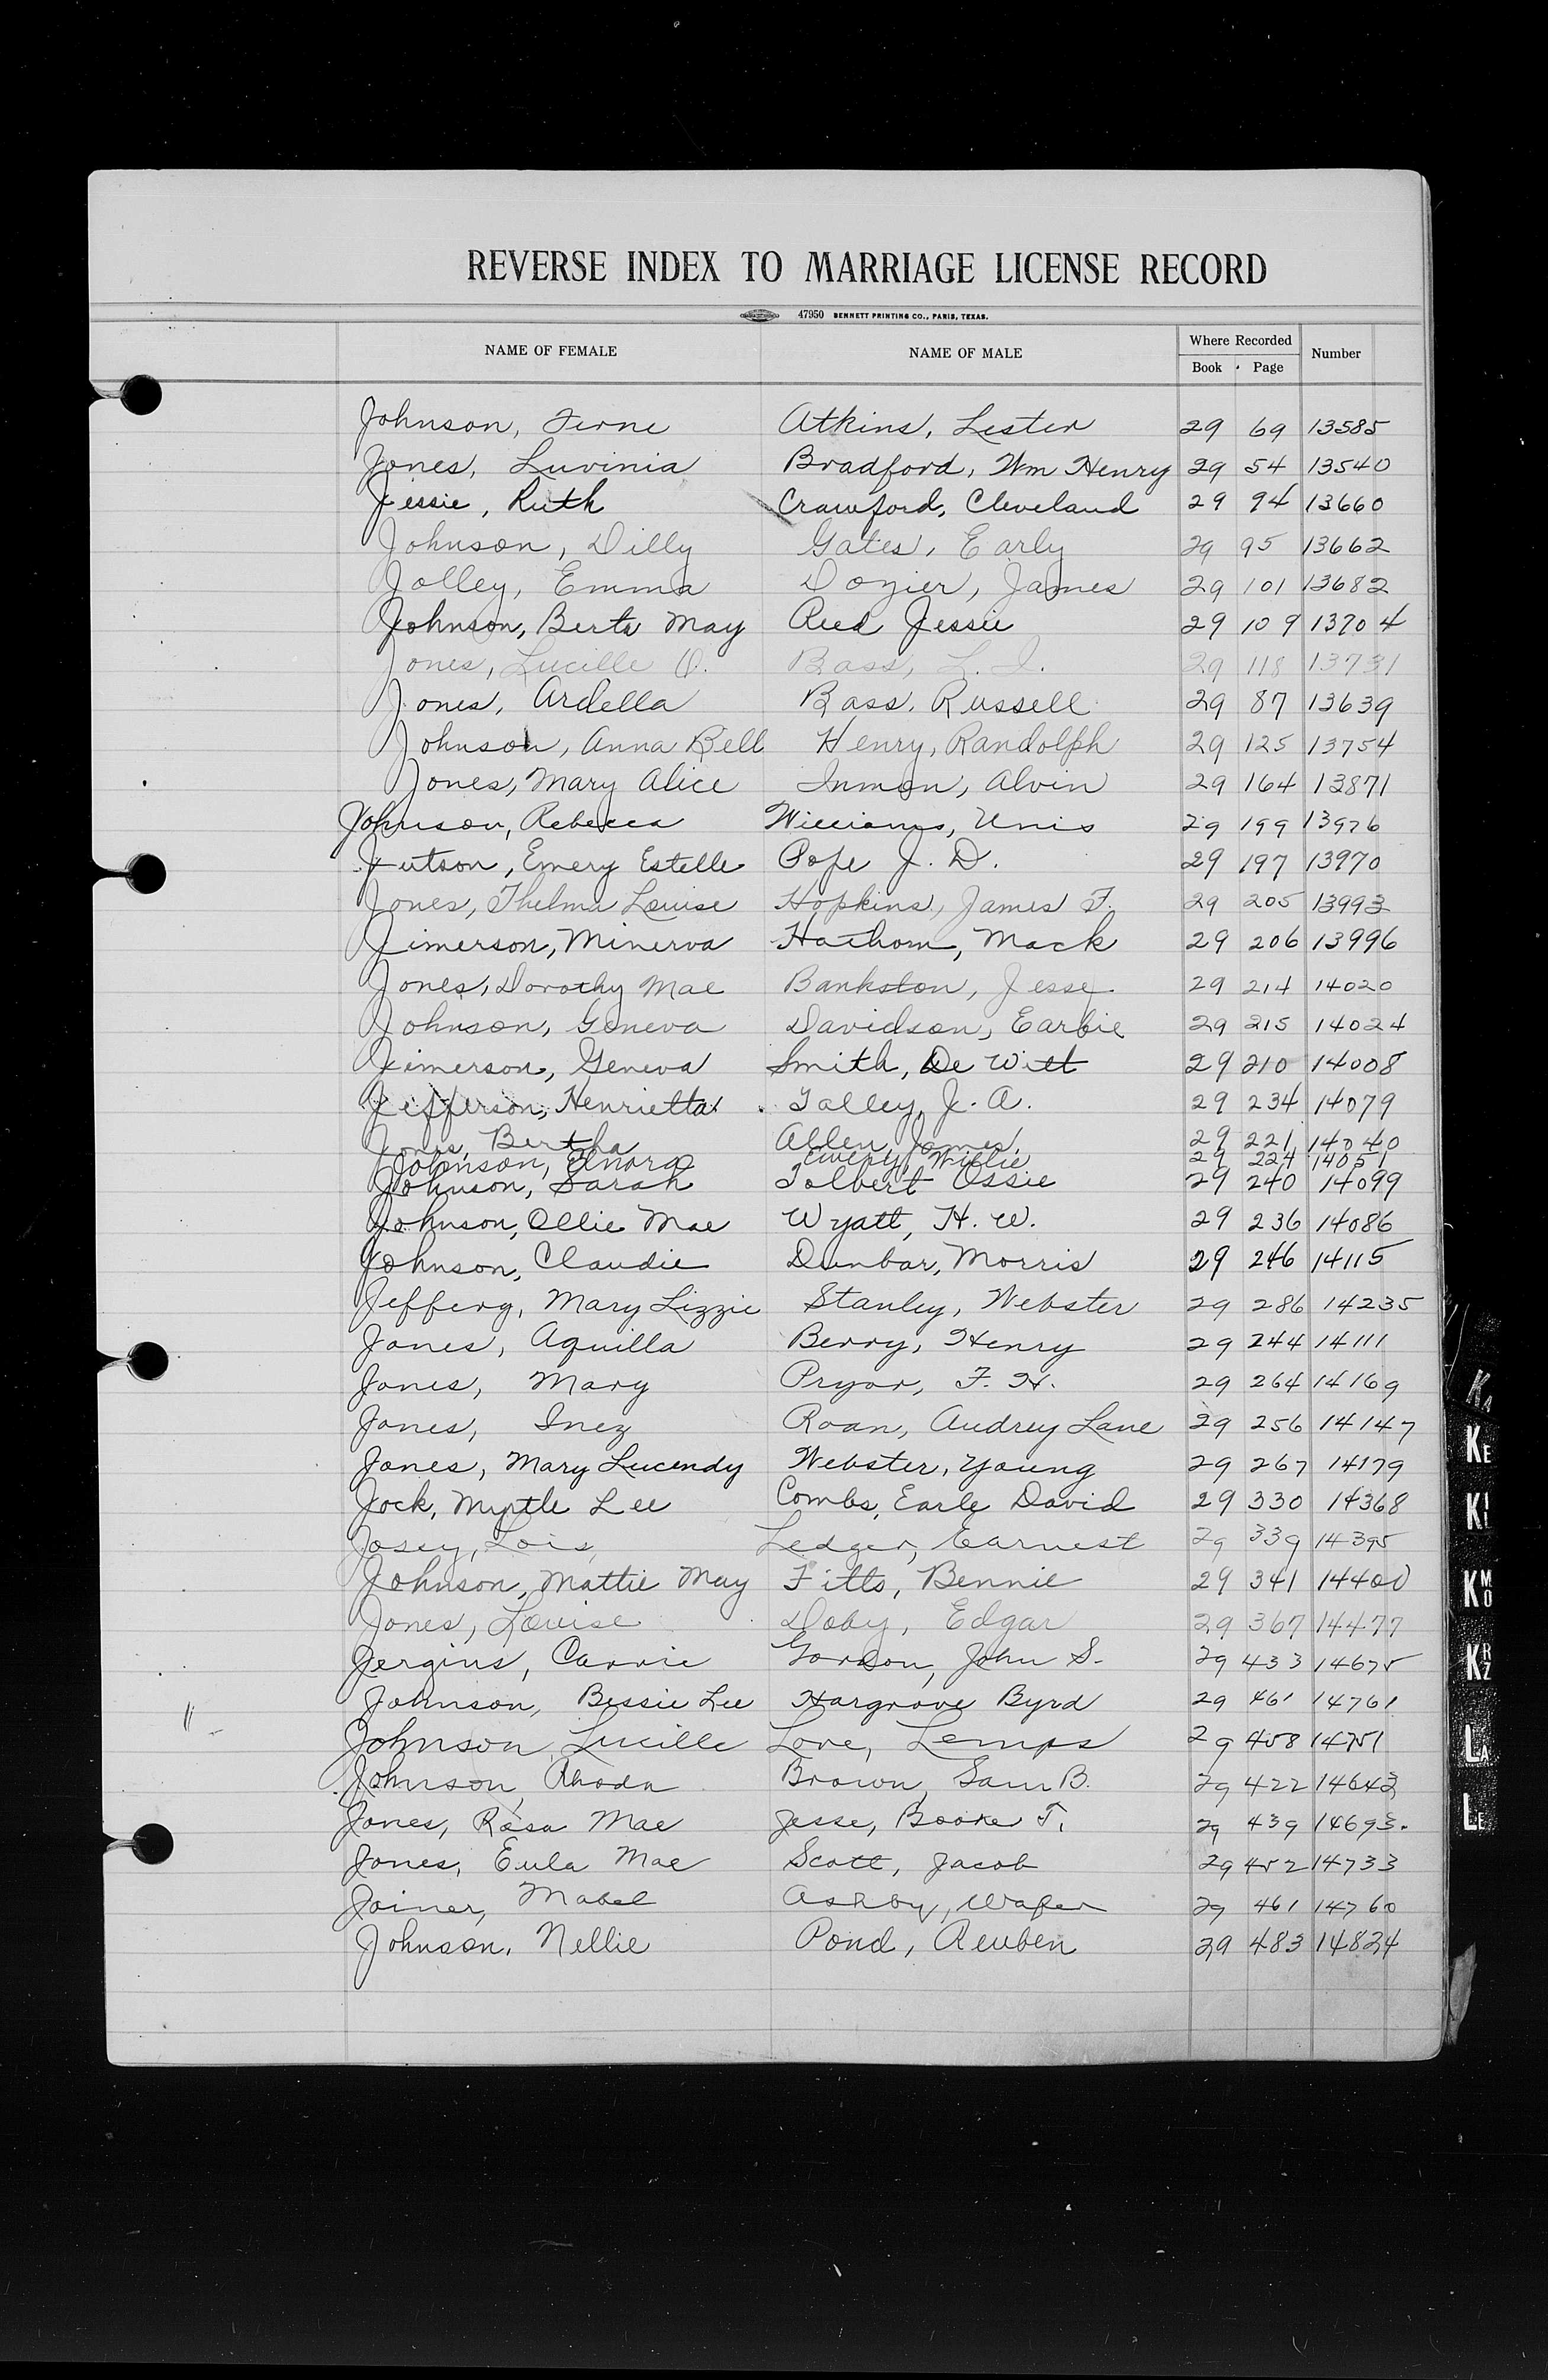 REVERSE INDEX TO MARRIAGE LICENSE RECORD
47950 BENNETT PRINTING CO., PARIS, TEXAS.
NAME OF FEMALE NAME OF MALE Where Recorded Number
Book Page
Johnson, Ferne Atkins, Lester 29 69 13585
Jones, Luvinia Bradford, Wm Henry 29 54 13540
Jessie, Ruth Crawford, Cleveland 29 94 13660
Johnson, Dilly Gates, Early 29 95 13662
Jolley, Emma Dozier, James 29 101 13682
Johnson, Berta May Reed Jessie 29 109 13704
Jones, Lucille O. Bass, L. I. 29 118 13731
Jones, Ardella Bass, Russell 29 87 13639
Johnson, Anna Bell Henry, Randolph 29 125 13754
Jones, Mary Alice Inmon, Alvin 29 164 13871
Johnson, Rebecca Williams, Unis 29 199 13976
Jutson, Emery Estelle Pope J. D. 29 197 13970
Jones, Thelma Louise Hopkins, James F. 29 205 13993
Jimerson, Minerva Hathorn, Mack 29 206 13996
Jones, Dorothy Mae Bankston, Jesse 29 214 14020
Johnson, Geneva Davidson, Earbie 29 215 14024
Jimerson, Geneva Smith, De Witt 29 210 14008
Jefferson, Henrietta Talley, J. A. 29 234 14079
Jones, Bertha Allen, James 29 221 14040
Johnson, Elnora Emery, Willie 29 224 14051
Johnson, Sarah Tolbert Ossie 29 240 14099
Johnson, Ollie Mae Wyatt, H. W. 29 236 14086
Johnson, Claudie Dunbar, Morris 29 246 14115
Jefferg, Mary Lizzie Stanley, Webster 29 286 14235
Jones, Aquilla Berry, Henry 29 244 14111
Jones, Mary Pryor, F. H. 29 264 14169
Jones, Inez Roan, Audrey Lane 29 256 14147
Jones, Mary Lucendy Webster, Young 29 267 14179
Jock, Myrtle Lee Combs, Earle David 29 330 14368
Josey, Lois Ledger, Earnest 29 339 14395
Johnson, Mattie May Fitts, Bennie 29 341 14400
Jones, Louise Doby, Edgar 29 367 14477
Jergins, Carrie Gordon, John S. 29 433 14675
Johnson, Bessie Lee Hargrove Byrd 29 461 14761
Johnson, Lucille Love, Lemps 29 458 14751
Johnson, Rhoda Brown, Sam B. 29 422 14643
Jones, Rosa Mae Jesse, Booke T. 29 439 14693.
Jones, Eula Mae Scott, Jacob 29 452 14733
Joiner, Mabel Ashby, Wafer 29 461 14760
Johnson, Nellie Pond, Reuben 29 483 14824
KA
KE
KI
KMO
KRZ
LA
LE